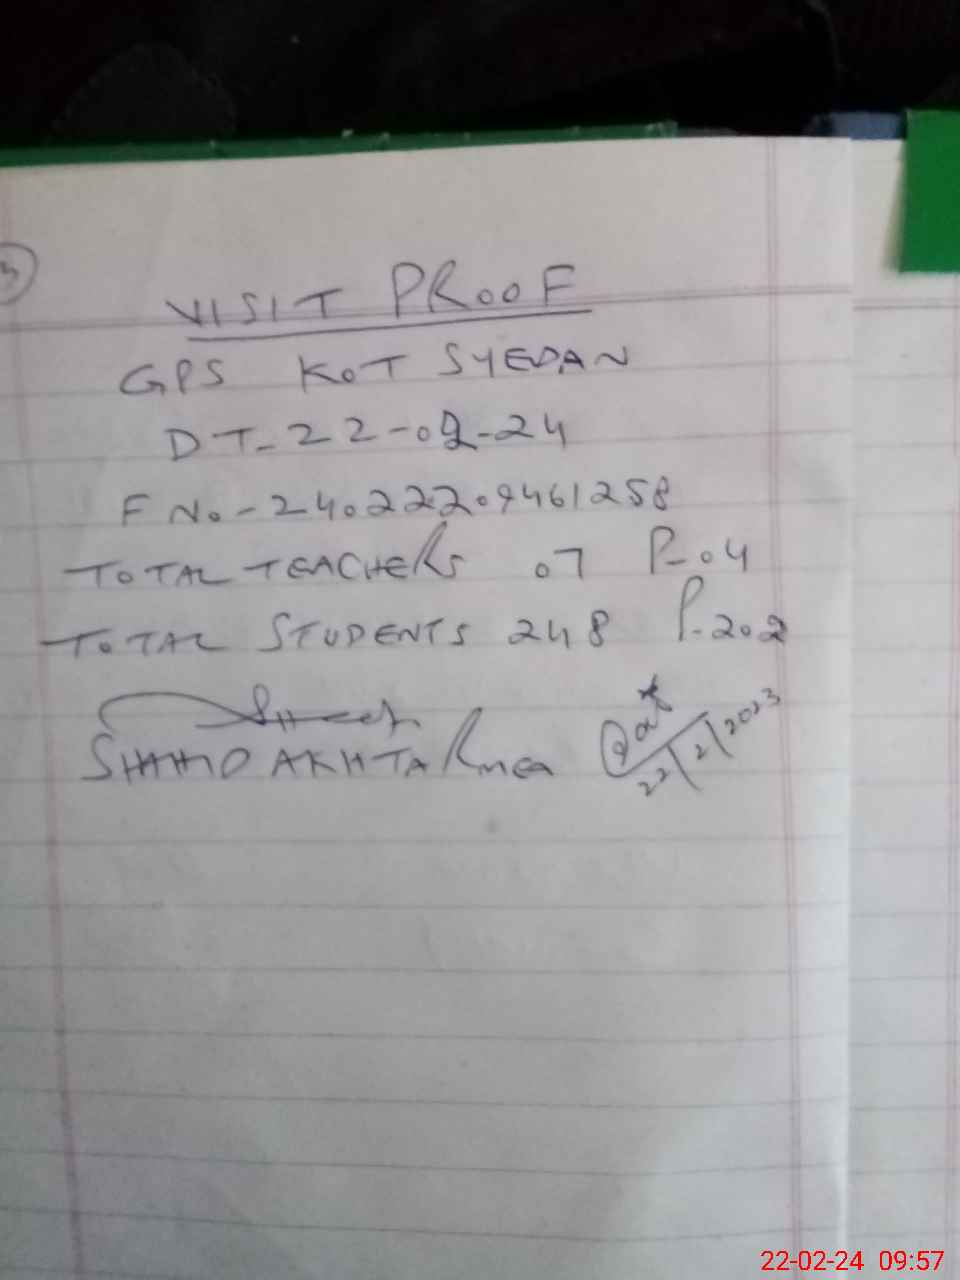 3
VISIT PROOF
GPS KOT SYEDAN
DT-22-02-24
F No.-24022209461258
TOTAL TEACHERS 07 P-04
TOTAL STUDENTS 248 P-202
AKHTAR MEA
22/2/2023
22-02-24 09:57